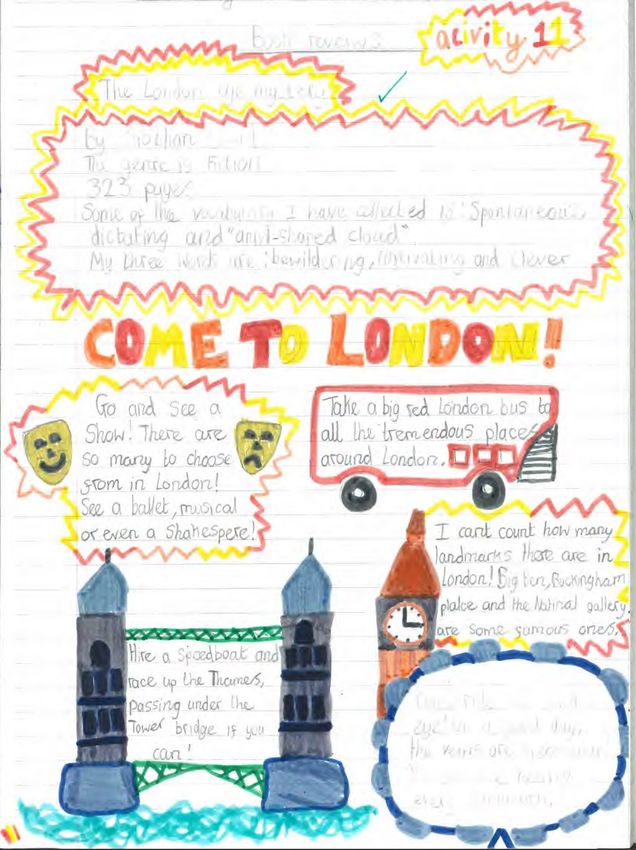 Book reviews
acivity 11
The London eye mystery
by Siobhan
The genre is Fiction
323 pages
Some of the vocabulary I have collected is: Spontaneous,
dictating and "anvil-shaped cloud"
My three words are: bewildering, and clever
COME TO LONDON!
Go and see a
Show! There are
so many to choose
from in London!
See a ballet, musical
or even a Shakespere!
Take a big red London bus to
all the tremendous places
around London.
I cant count how many
landmarks there are in
London! Big ben, Buckingham
plalce and the Natinal gallery
are some famous ones.
Hire a speedboat and
race up the Thames,
passing under the
Tower bridge if you
can!
Come ride
eye! On a good day,
the veiws are
every